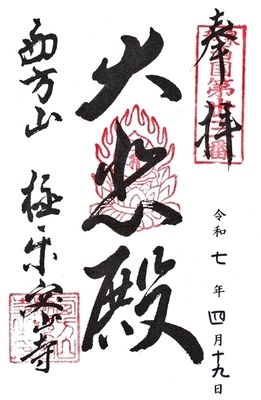 奉拝
令和七年四月十九日
大悲殿
西方山 極楽密寺